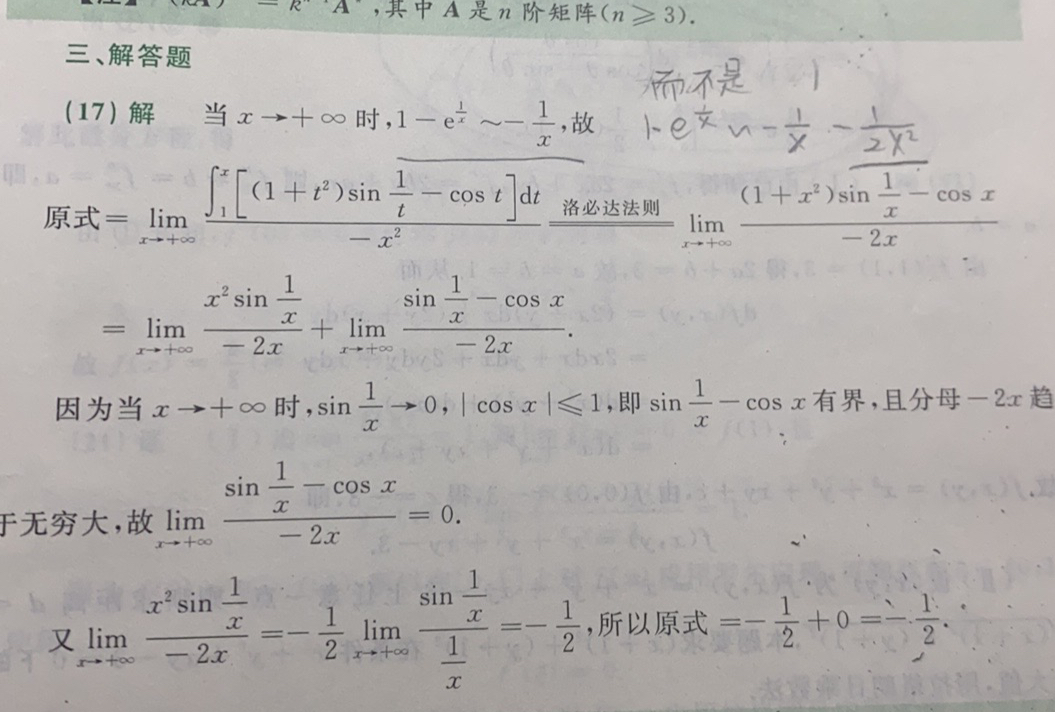 其中 A 是 n 阶矩阵(n ≥ 3).
三、解答题
而不是
(17) 解 当 x→+∞ 时, 1 − e^{1/x} ~ −1/x, 故
1-e^{1/x} ~ -1/x - 1/(2x²)
原式 = lim_{x→+∞} ∫_1^x [(1+t²)sin(1/t) − cos t]dt / (−x²) =(洛必达法则)= lim_{x→+∞} ((1+x²)sin(1/x) − cos x) / (−2x)
= lim_{x→+∞} (x² sin(1/x)) / (−2x) + lim_{x→+∞} (sin(1/x) − cos x) / (−2x).
因为当 x→+∞ 时, sin(1/x)→0, |cos x| ≤ 1, 即 sin(1/x) − cos x 有界, 且分母 −2x 趋
于无穷大, 故 lim_{x→+∞} (sin(1/x) − cos x) / (−2x) = 0.
又 lim_{x→+∞} (x² sin(1/x)) / (−2x) = −1/2 lim_{x→+∞} sin(1/x) / (1/x) = −1/2, 所以原式 = −1/2 + 0 = −1/2.